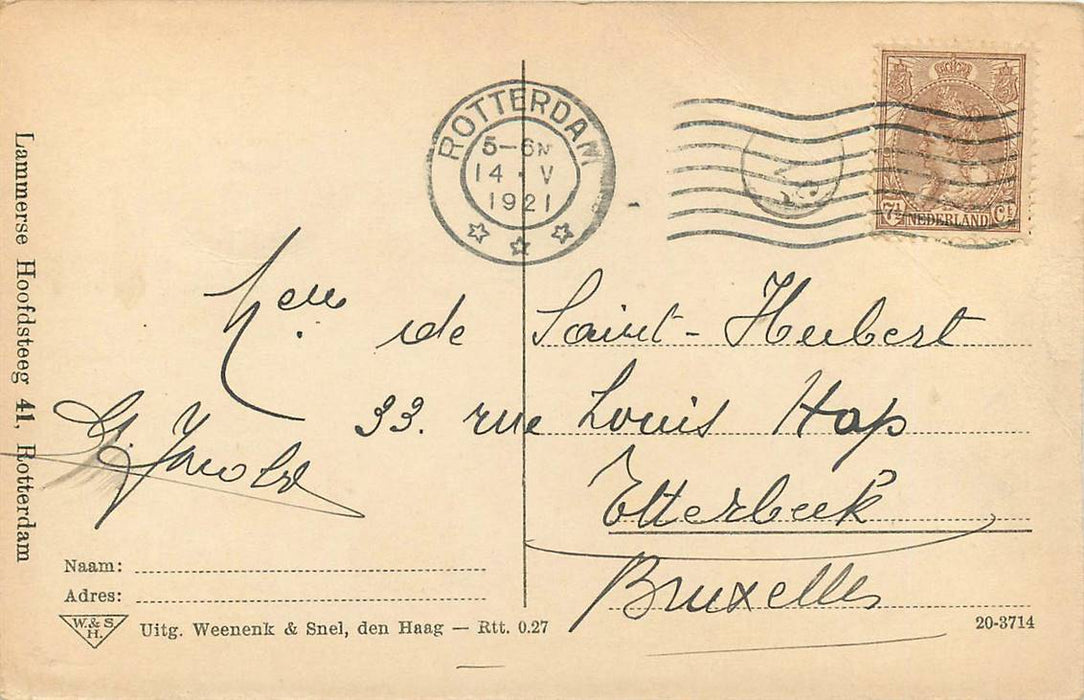 ROTTERDAM
5-6N
14 · V
1921
7½ NEDERLAND Ct
de Saint-Hubert
33. rue Louis Hap
Etterbeek
Bruxelles
Lammerse Hoofdsteeg 41, Rotterdam
Naam:
Adres:
W.& S.
H.
Uitg. Weenenk & Snel, den Haag — Rtt. 0.27
20-3714